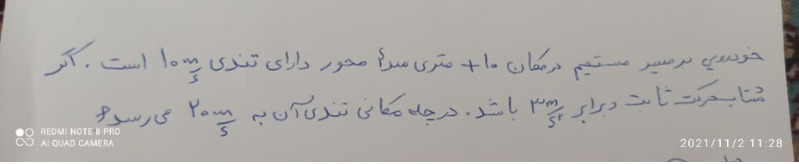 خودروي در مسیر مستقیم در مکان ۱۰+ متری مبدأ محور دارای تندی ۱۰ m/s است. اگر
شتاب حرکت ثابت و برابر ۳ m/s² باشد. در چه مکانی تندی آن به ۲۰ m/s می رسد؟
REDMI NOTE 8 PRO
AI QUAD CAMERA
2021/11/2 11:28